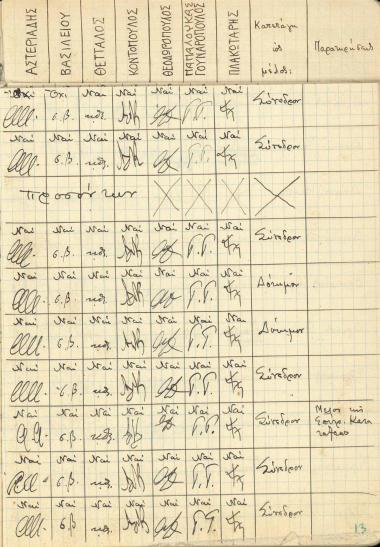 ΑΣΤΕΡΙΑΔΗΣ ΒΑΣΙΛΕΙΟΥ ΘΕΤΤΑΛΟΣ ΚΟΝΤΟΠΟΥΛΟΣ ΘΕΟΔΩΡΟΠΟΥΛΟΣ ΠΑΠΑΛΟΥΚΑΣ ΓΟΥΝΑΡΟΠΟΥΛΟΣ ΠΛΑΚΩΤΑΡΗΣ Κατετάγη ως μέλος: Παρατηρήσεις
Όχι Όχι Ναί Ναί Ναί Ναί Ναί Σύνεδρον
σ.β. κθ. Γ.Γ.
Ναί Ναί Ναί Ναί Ναί Ναί Ναί Σύνεδρον
σ.β. κθ. Γ.Γ.
προσόντων
Ναί Ναί Ναί Ναί Ναί Ναί Ναί Σύνεδρον
σ.β. κθ. Γ.Γ.
Ναί Ναί Ναί Ναί Ναί Ναί Ναί Δόκιμον
σ.β. κθ. Γ.Γ.
Ναί Ναί Ναί Ναί Ναί Ναί Ναί Δόκιμον
σ.β. κθ. Γ.Γ.
Ναί Ναί Ναί Ναί Ναί Ναί Ναί Σύνεδρον
σ.β. κθ. Γ.Γ.
Ναί Ναί Ναί Ναί Ναί Ναί Ναί Σύνεδρον Μέλος της
σ.β. κθ. Γ.Γ. Επιτρ. Κατα
τάξεως
Ναί Ναί Ναί Ναί Ναί Ναί Ναί Σύνεδρον
σ.β. κθ. Γ.Γ.
Ναί Ναί Ναί Ναί Ναί Ναί Ναί Σύνεδρον
σ.β. κθ. Γ.Γ. 13